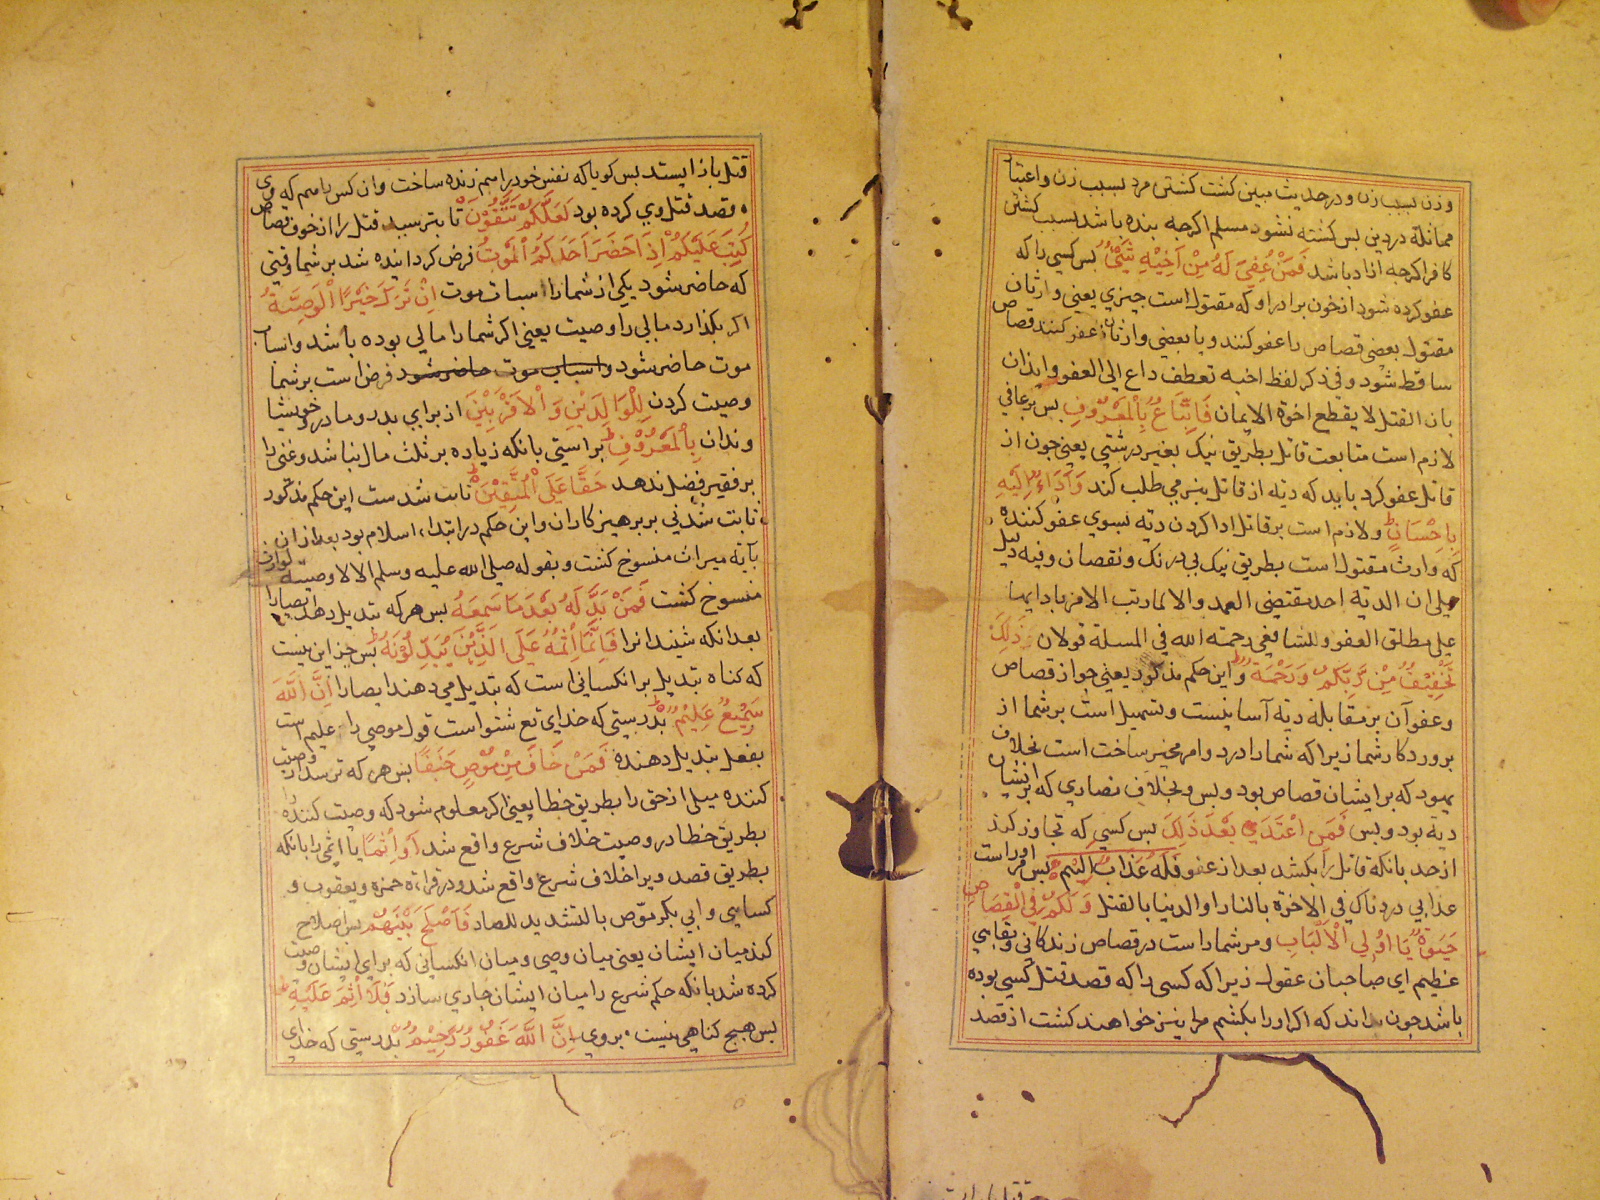 وزن بسبب زن و در حدیث مبین کشت کشتن مرد بسبب زن و اعتبار
مماثلة در دین بس کشته نشود مسلم اکرچه بنده باشد بسبب کشتن
کافر اکرچه ازاد باشد فَمَنْ عُفِيَ لَهُ مِنْ اَخِيْهِ شَيْءٌ بس کسی را که
عفو کرده شود از خون برادر او که مقتول است چیزي یعنی وارثان
مقتول بعضی قصاص را عفو کنند و یا بعضی وارثان عفو کنند قصاص
ساقط شود و في ذکر لفظ اخیه تعطف داع الی العفو وایذان
بان القتل لا یقطع اخوة الایمان فَاتِّبَاعٌ بِالْمَعْرُوفِ بس بر عافی
لازم است متابعت قاتل بطریق نیک بغیر درشتي یعنی چون از
قاتل عفو کرد باید که دیة از قاتل بنرمي طلب کند وَاَدَاءٌ اِلَيْهِ
بِاِحْسَانٍ ولازم است بر قاتل ادا کردن دیة بسوي عفو کننده
که وارث مقتول است بطریق نیک بی درنک و نقصان و فیه دلیل
علی ان الدیة احد مقتضی العمد والا لما رتب الامر بادایها
علی مطلق العفو وللشافعی رحمته الله في المسلة قولان ذٰلِكَ
تَخْفِيْفٌ مِنْ رَبِّكُمْ وَرَحْمَةٌ و این حکم مذکور یعنی جواز قصاص
و عفو آن بر مقابله دیة آسانیست و تسهیل است بر شما از
بروردکار شما زیرا که شما را درد و امر مخیر ساخت است بخلاف
یهود که بر ایشان قصاص بود و بس و بخلاف نصاري که بر ایشان
دیة بود و بس فَمَنِ اعْتَدَى بَعْدَ ذٰلِكَ بس کسی که تجاوز کرد
از حد بانکه قاتل را بکشد بعد از عفو فَلَهُ عَذَابٌ اَلِيْمٌ بس مر اوراست
عذابي دردناک في الاخرة بالنار او الدنیا بالقتل وَلَكُمْ فِي الْقِصَاصِ
حَيٰوةٌ يَا اُولِي الْاَلْبَابِ و مر شما راست در قصاص زندکانی و بقاي
عظیم اي صاحبان عقول زیرا که کسی را که قصد قتل کسی بوده
باشد چون بداند که اکر او را بکشم مرا نیز خواهند کشت از قصد
قتل باز ایستد بس کویا که نفس خود را هم زنده ساخت وان کس را هم که وي
قصد قتل وي کرده بود لَعَلَّكُمْ تَتَّقُوْنَ تا بترسید قتل را از خوف قصاص
كُتِبَ عَلَيْكُمْ اِذَا حَضَرَ اَحَدَكُمُ الْمَوْتُ فرض کردانیده شد بر شما وقتی
که حاضر شود یکی از شما را اسباب موت اِنْ تَرَكَ خَيْرًا الْوَصِيَّةُ
اکر بکذارد مالی را وصیت یعنی اکر شما را مالی بوده باشد و اسباب
موت حاضر شود واسباب موت حاضر شود فرض است بر شما
وصیت کردن لِلْوَالِدَيْنِ وَالْاَقْرَبِيْنَ از براي بدر و مادر و خویشا
وندان بِالْمَعْرُوْفِ براستي بانکه زیاده بر ثلث مال نباشد و غني را
بر فقیر فضل ندهد حَقًّا عَلَى الْمُتَّقِيْنَ ثابت شد ست این حکم مذکور
ثابت شدني بر برهیزکاران و این حکم در ابتداء اسلام بود بعد از ان
بآیة میراث منسوخ کشت و بقوله صلی الله علیه وسلم الا لا وصیة لوارث
منسوخ کشت فَمَنْ بَدَّلَهُ بَعْدَ مَا سَمِعَهُ بس هر که تبدیل دهد ایصا را
بعد انکه شنید انرا فَاِنَّمَا اِثْمُهُ عَلَى الَّذِيْنَ يُبَدِّلُوْنَهُ بس جز این نیست
که کناه تبدیل بر انکسانی است که تبدیل مي دهند ایصا را اِنَّ اللّٰهَ
سَمِيْعٌ عَلِيْمٌ بدرستي که خداي تع شنواست قول موصي را علیم است
بفعل تبدیل دهنده فَمَنْ خَافَ مِنْ مُوْصٍ جَنَفًا بس هر که ترسد از وصیت
کننده میلی از حق را بطریق خطا یعنی اکر معلوم شود که وصیت کننده را
بطریق خطا در وصیت خلاف شرع واقع شد اَوْ اِثْمًا یا اثمی را بانکه
بطریق قصد ویرا خلاف شرع واقع شد و در قراءة حمزه و یعقوب و
کسایی و ابي بکر موّص بالتشدید للصاد فَاَصْلَحَ بَيْنَهُمْ بس اصلاح
کند میان ایشان یعنی میان وصی و میان انکسانی که براي ایشان وصیت
کرده شد بانکه حکم شرع را میان ایشان جاري سازد فَلَا اِثْمَ عَلَيْهِ
بس هیچ کناهی نیست بروي اِنَّ اللّٰهَ غَفُوْرٌ رَحِيْمٌ بدرستي که خداي